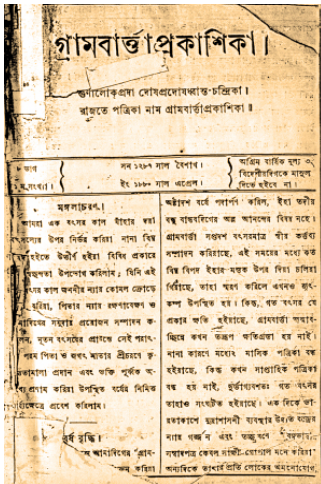 গ্রামবার্ত্তাপ্রকাশিকা।
গুণালোকপ্রদা দোষপ্রদোষধ্বান্ত-চন্দ্রিকা।
রাজতে পত্রিকা নাম গ্রামবার্ত্তাপ্রকাশিকা॥
ভাগ
সংখ্যা।
সন ১২৮৭ সাল বৈশাখ।
ইং ১৮৮০ সাল এপ্রেল।
অগ্রিম বার্ষিক মূল্য ৩
বিদেশীয়দিগকে মাশুল
দিতে হইবে না।
মঙ্গলাচরণ।
এক বৎসর কাল যাঁহার দয়া
উপর নির্ভর করিয়া নানা বিঘ্ন
হইতে উত্তীর্ণ হইয়া বিবিধ প্রকারে
উপভোগ করিলাম; যিনি এই
কাল জননীর ন্যায় কোমল ক্রোড়ে
পিতার ন্যায় রক্ষণাবেক্ষণ ও
সমুদায় প্রয়োজন সম্পাদন
নূতন বৎসরের প্রারম্ভে সেই
পিতা ও জগৎ মাতার শ্রীচরণে
প্রদান এবং ভক্তি পূর্ব্বক
প্রণাম করিয়া উপস্থিত বর্ষের নিমিত্ত
প্রবেশ করিলাম।
বৃদ্ধি।
আমাদিগের
করিয়া
অষ্টাদশ বর্ষে পদার্পণ করিল, ইহা তদীয়
বন্ধু বান্ধবদিগের অল্প আনন্দের বিষয় নহে।
গ্রামবার্ত্তা সপ্তদশ বৎসরমাত্র স্বীয় কর্ত্তব্য
সম্পাদন করিয়াছে, এই সময়ের মধ্যে কত
বিঘ্ন বিপদ ইহার মস্তক উপর দিয়া চলিয়া
গিয়াছে, তাহা স্মরণ করিলে এখনও
উপস্থিত হয়। কিন্তু, গত বৎসর যে
প্রকার ক্ষতি হইয়াছে, গ্রামবার্ত্তা
কখন তদ্রূপ ক্ষতিগ্রস্তা হয় নাই।
নানা কারণে মধ্যেং মাসিক পত্রিকা বন্ধ
হইয়াছে, কিন্তু কখন সাপ্তাহিক পত্রিকা
বন্ধ হয় নাই, দুর্ভাগ্যবশতঃ গত বৎসর
তাহাও সংঘটিত হইয়াছে। এক দিকে
মুদ্রাশাসনী ব্যবস্থার
ন্যায় গর্জ্জন এবং
সম্বাদপত্র কেবল মনে করিয়া
অন্যদিকে তাহার প্রতি লোকের অমনোযোগ,